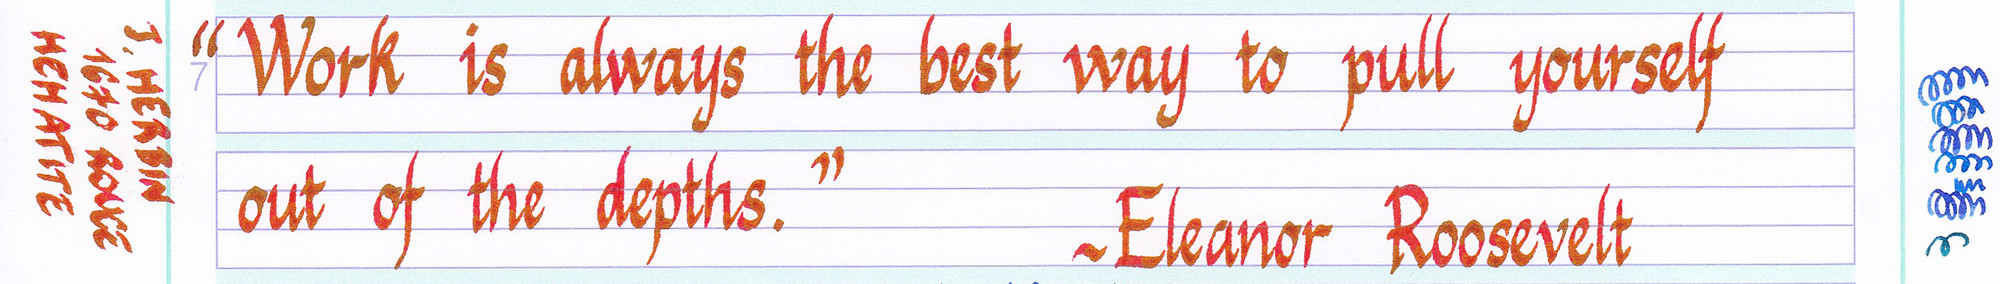 J. HERBIN
1670 ROUGE
HEMATITE
7
“Work is always the best way to pull yourself
out of the depths.”
~Eleanor Roosevelt